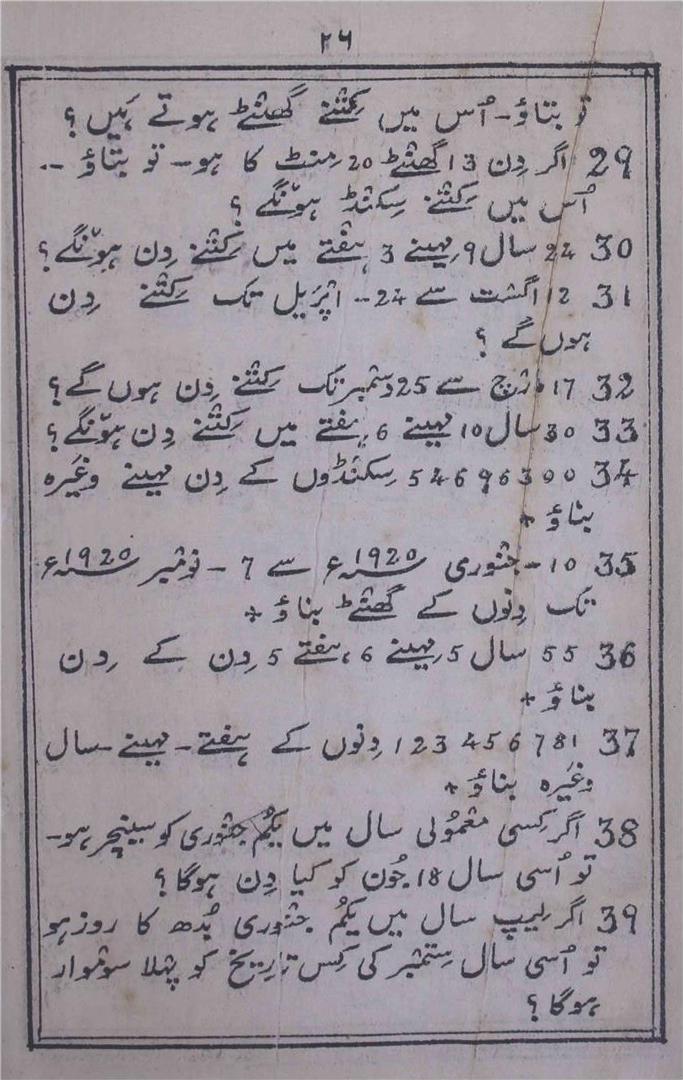 ۲۶
تو بتاؤ۔ اُس میں کِتنے گھنٹے ہوتے ہَیں؟
29 اگر دِن 13 گھنٹے 20 مِنٹ کا ہو۔ تو بتاؤ ۔۔
اُس میں کِتنے سِکنڈ ہونگے؟
30 24 سال 9 مہینے 3 ہفتے میں کِتنے دِن ہونگے؟
31 12 اگست سے 24۔ اپریل تک کِتنے دِن
ہوں گے؟
32 17 مارچ سے 25 دسمبر تک کِتنے دِن ہوں گے؟
33 30 سال 10 مہینے 6 ہفتے میں کِتنے دِن ہونگے؟
34 54696300 سِکنڈوں کے دِن مہینے وغیرہ
بناؤ +
35 10۔ جنوری 1920ء سے 7۔ نومبر 1920ء
تک دِنوں کے گھنٹے بناؤ +
36 55 سال 5 مہینے 6 ہفتے 5 دِن کے دِن
بناؤ +
37 123456781 دِنوں کے ہفتے۔ مہینے۔ سال
وغیرہ بناؤ +
38 اگر کِسی معمُولی سال میں یکُم جنوری کو سینچر ہو۔
تو اُسی سال 18 جُون کو کیا دِن ہوگا؟
39 اگر لیپ سال میں یکُم جنوری بُدھ کا روز ہو
تو اُسی سال سِتمبر کی کِس تاریخ کو پہلا سوموار
ہوگا؟